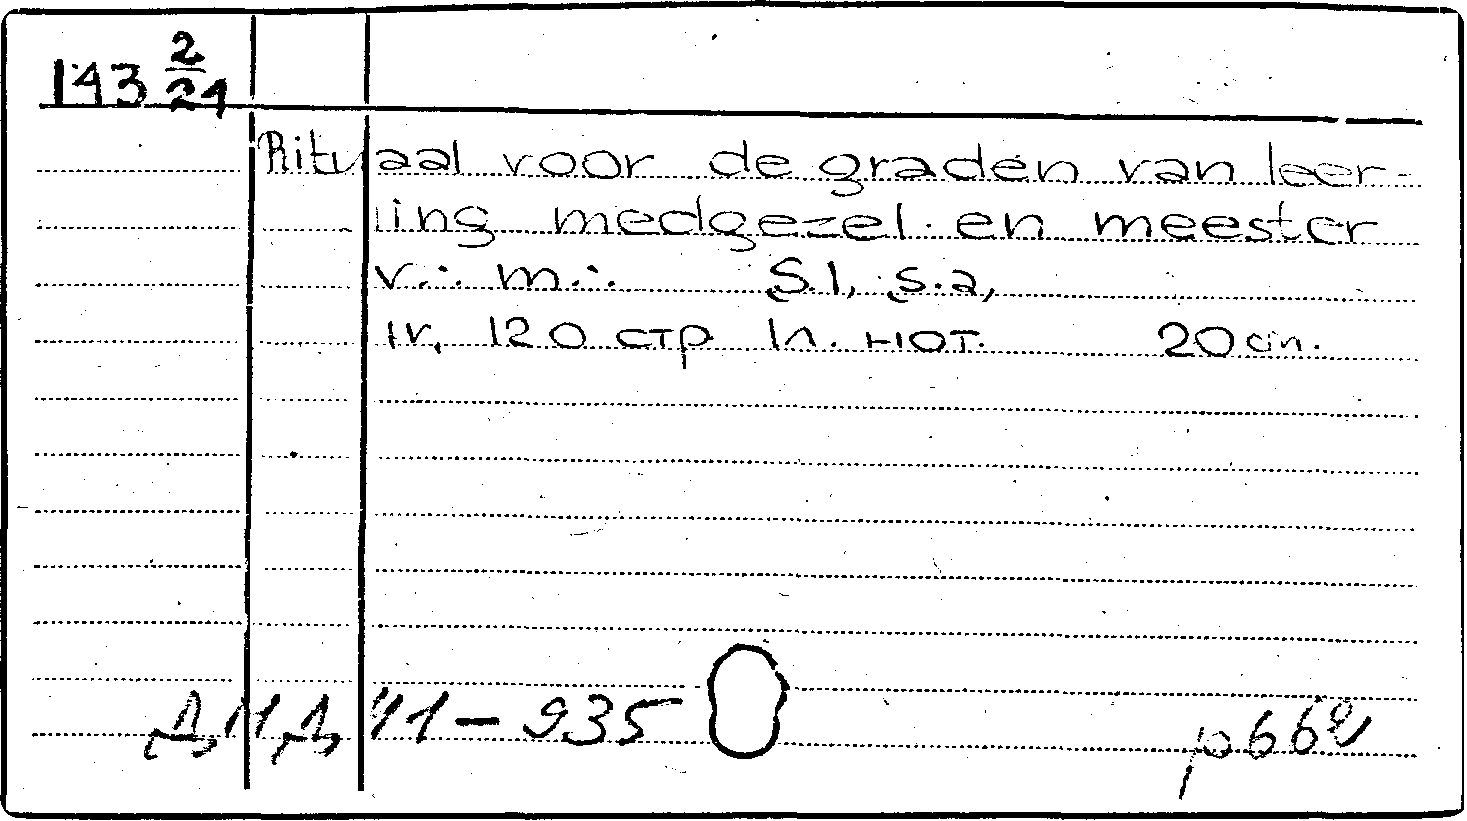 143 2/24
Rituaal voor de graden van leer-
ling medgezel en meester
v.·. m.·. S.l, s.a,
IV, 120 стр In. нот. 20 cm.
41-935